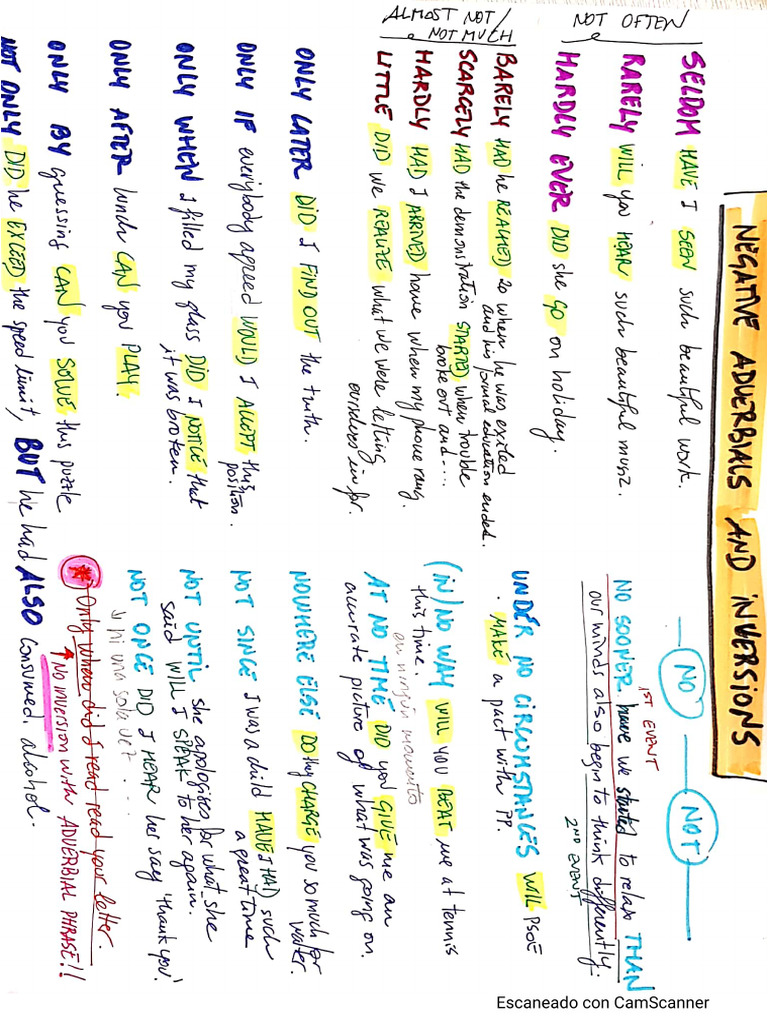 NEGATIVE ADVERBIALS AND INVERSIONS
NOT OFTEN
SELDOM HAVE I SEEN such beautiful work.
RARELY WILL you HEAR such beautiful music.
HARDLY EVER DID she GO on holiday.
ALMOST NOT /
NOT MUCH
BARELY HAD he REACHED 20 when he was exited
and his formal education ended.
SCARCELY HAD the demonstration STARTED when trouble
broke out and....
HARDLY HAD I ARRIVED home when my phone rang.
LITTLE DID we REALIZE what we were letting
ourselves in for.
ONLY LATER DID I FIND OUT the truth.
ONLY IF everybody agreed WOULD I ACCEPT this
position.
ONLY WHEN I filled my glass DID I NOTICE that
it was broken.
ONLY AFTER lunch CAN you PLAY.
ONLY BY guessing CAN you SOLVE this puzzle
NOT ONLY DID he EXCEED the speed limit, BUT he had ALSO consumed alcohol.
NO NOT
1ST EVENT
NO SOONER have we started to relax THAN
our minds also begin to think differently.
2ND EVENT
UNDER NO CIRCUMSTANCES WILL PSOE
MAKE a pact with PP.
(IN) NO WAY WILL YOU BEAT me at tennis
this time.
en ningún momento
AT NO TIME DID you GIVE me an
accurate picture of what was going on.
NOWHERE ELSE DO they CHARGE you so much for
water.
NOT SINCE I was a child HAVE I HAD such
a great time
NOT UNTIL she apologises for what she
said WILL I SPEAK to her again.
NOT ONCE DID I HEAR her say 'thank you'.
ni una sola vez....
* Only when did I read read your letter.
NO INVERSION WITH ADVERBIAL PHRASE!!
Escaneado con CamScanner